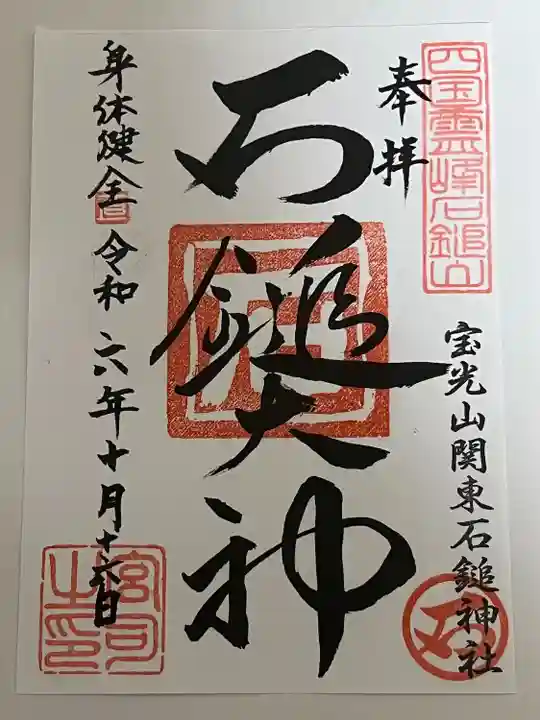 四国霊峰石鎚山
奉拝
宝光山関東石鎚神社
石鎚大神
身体健全 令和六年十月十六日
宮司之印